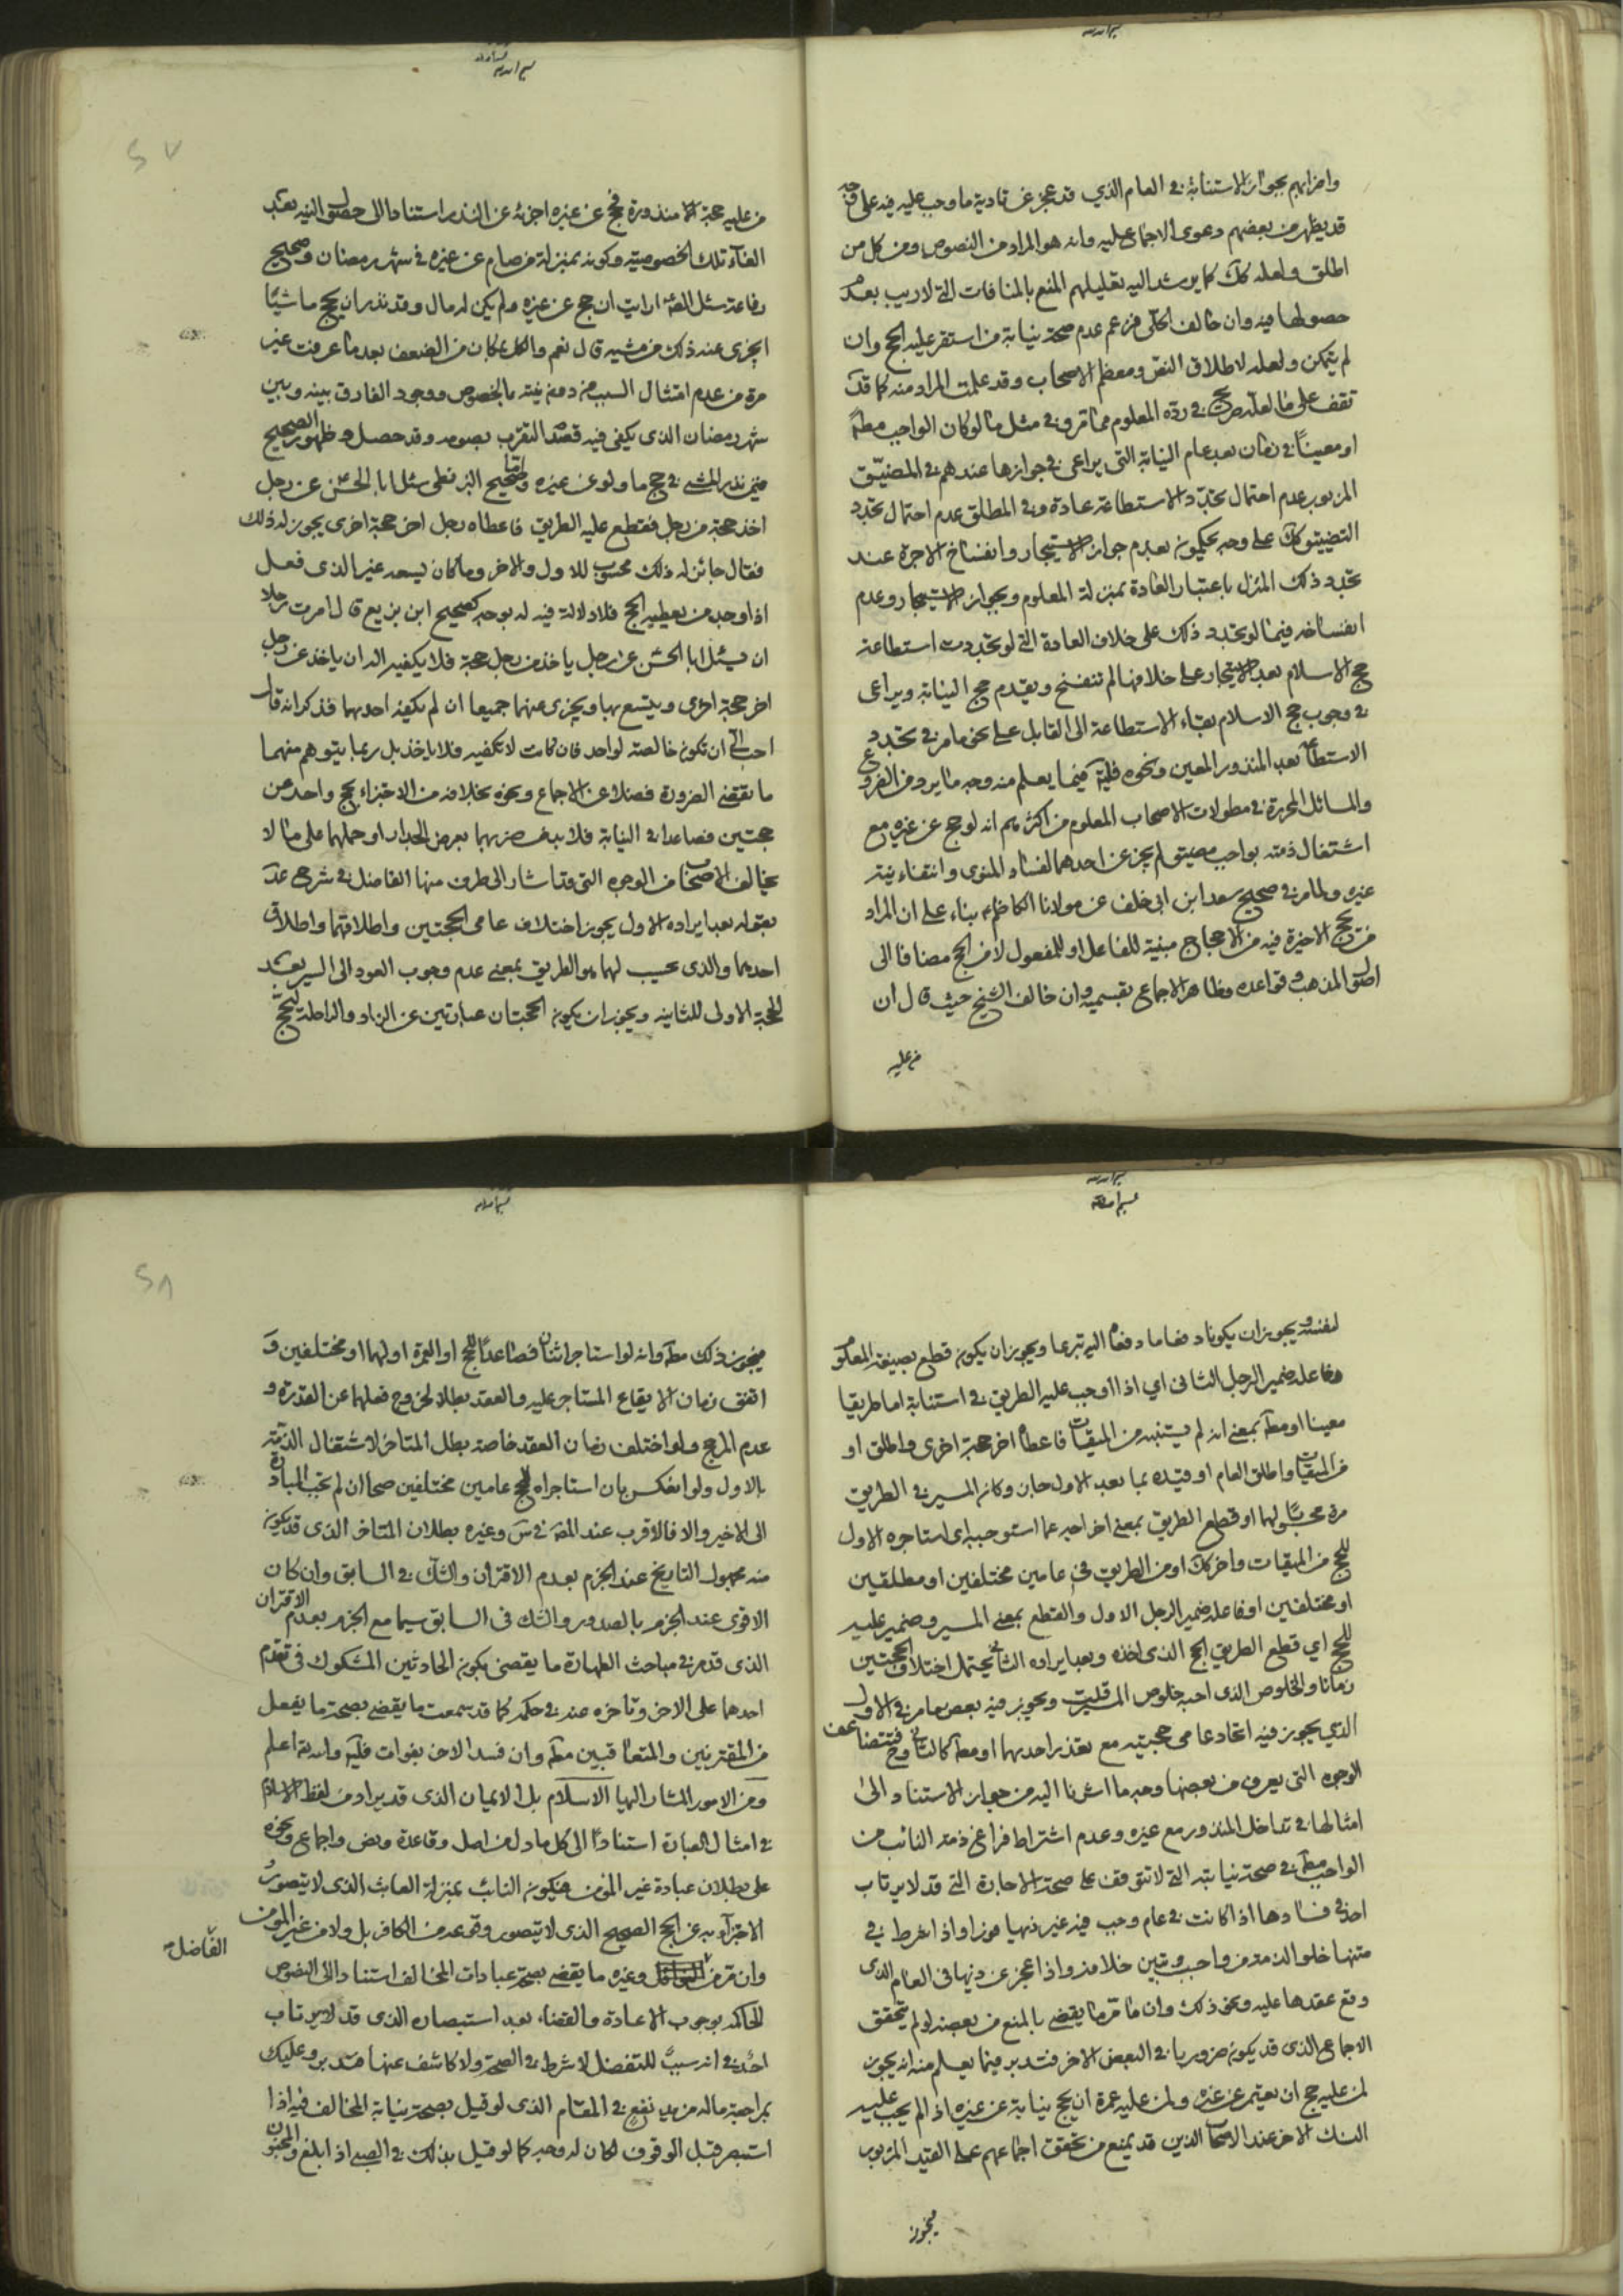 واضرابهم بجواز الاستنابة في العام الذي قد عجز عن تادية ما وجب عليه فيه على وجه
قد يظهر من بعضهم دعوى الاجماع عليه وانه هو المراد من النصوص ومن كل من
اطلق ولعله كك كما يرشد اليه تعليلهم المنع بالمنافات التي لا ريب بعدم
حصولها فيه وان خالف الحلى فزعم عدم صحة نيابة من استقر عليه الحج وان
لم يتمكن ولعله لاطلاق النص ومعظم الاصحاب وقد علمت المراد منه كما قد
تقف على ما لعله صريح في رده المعلوم مما مر وفي مثل ما لو كان الواجب مط
او معينا في زمان بعد عام النيابة التي يراعى في جوازها عندهم في المضيق
المزبور عدم احتمال تجدد الاستطاعة عادة وفي المطلق عدم احتمال تجدد
التضييق كك على وجه يحكمون بعدم جواز الاستيجار وانفساخ الاجرة عند
تجدد ذلك المنزل باعتبار العادة بمنزلة المعلوم وبجواز الاستيجار وعدم
انفساخه فيما لو تجدد ذلك على خلاف العادة التي لو تجددت استطاعة
حج الاسلام بعد الاستيجار على خلافها لم تنفسخ ويقدم حج النيابة ويراعى
في وجوب حج الاسلام بقاء الاستطاعة الى القابل على نحو ما مر في تجدد
الاستطاعة بعد المنذور المعين ونحوه فليتأمل فيما يعلم منه وجه ما يرد من الفروع
والمسائل المحررة في مطولات الاصحاب المعلوم من اكثرهم انه لو حج عن غيره مع
اشتغال ذمته بواجب مضيق لم يجز عن احدهما لفساد المنوى وانتفاء نيته
عنه ولما مر في صحيح سعد ابن ابى خلف عن مولانا الكاظم ع بناء على ان المراد
من يحج الاخيرة فيه من الاحجاج مبنية للفاعل او للمفعول لا من الحج مضافا الى
اصول المذهب وقواعده وظاهر الاجماع بقسميه وان خالف الشيخ حيث قال ان
من عليه
من عليه حجة منذورة فحج عن غيره اجزئه عن النذر استنادا الى حصول النية بعد
الغاء تلك الخصوصية وكونه بمنزلة من صام عن غيره في شهر رمضان وصحيح
رفاعة سئل الص ارايت ان حج عن غيره ولم يكن له مال وقد نذر ان يحج ماشيا
ايجزى عنه ذلك من مشيه قال نعم والكل بمكان من الضعف بعد ما عرفت غير
مرة من عدم امتثال السبب من دون نيته بالخصوص ووجود الفارق بينه وبين
شهر رمضان الذى يكفى فيه قصد التقرب بصومه وقد حصل وظهور الصحيح
فيمن نذر المشى في حج ما ولو عن غيره واما صحيح البزنطى سئل ابا الحسن عن رجل
اخذ حجة من رجل فقطع عليه الطريق فاعطاه رجل اخر حجة اخرى يجوز له ذلك
فقال جائز له ذلك محسوب للاول والاخر وما كان يسعه غير الذى فعل
اذا وجد من يعطيه الحج فلا دلالة فيه له بوجه كصحيح ابن بزيع قال امرت رجلا
ان يسئل ابا الحسن عن رجل ياخذ من رجل حجة فلا يكفيه اله ان ياخذ عن رجل
اخر حجة اخرى ويتسع بها ويجزى عنهما جميعا ان لم يكفه احدهما فذكر انه قال
احب الى ان تكون خالصة لواحد فان كانت لا تكفيه فلا ياخذ بل ربما يتوهم منهما
ما يقتضى الضرورة فضلا عن الاجماع ونحوه بخلافه من الاجتزاء بحج واحد عن
حجتين فصاعدا في النيابة فلا بد من ضربهما بعرض الجدار او حملهما على ما لا
يخالف الاصحاب من الوجوه التي قد اشار الى طرف منها الفاضل في شرح عد
بقوله بعد ايراده الاول يجوز اختلاف عامى الحجتين واطلاقهما واطلاق
احدهما والذى يحسب لهما هو الطريق بمعنى عدم وجوب العود الى السير بعد
الحجة الاولى للثانية ويجوز ان يكون الحجتان عبارتين عن الزاد والراحلة ليحج
لنفسه ويجوز ان يكونا دفعا ما دفعا اليه تبرعا ويجوز ان يكون قطع بصيغة المعلوم
وفاعله ضمير الرجل الثانى اي اذا اوجب عليه الطريق في استنابة اما طريقا
معينا او مط بمعنى انه لم يستنبه من الميقات فاعطاه اخر حجة اخرى واطلق او
من الميقات واطلق العام او قيده بما بعد الاول جاز وكان المسير في الطريق
مرة محسبا لهما او قطع الطريق بمعنى اخراجه عما استوجبه اى استاجره الاول
للحج من الميقات واخر كك او من الطريق في عامين مختلفين او مطلقين
او مختلفين او فاعله ضمير الرجل الاول والقطع بمعنى المسير وضمير عليه
للحج اي قطع الطريق للحج الذى اخذه وبعد ايراده الثانى يحتمل اختلاف الحجتين
زمانا والخلوص الذى احبه خلوص الوقت ويجوز فيه بعض ما مر في الاول
الذي يجوز فيه اتحاد عامى حجتيه مع تعذر احدهما او مط كالثانى وح فتتضاعف
الوجوه التي يعرف من بعضها وجه ما اشرنا اليه من جواز الاستناد الى
امثالها في تداخل المنذور مع غيره وعدم اشتراط فراغ ذمة النائب من
الواجب مط في صحة نيابته التي لا تتوقف على صحة الاجارة التي قد لا يرتاب
احد في فسادها اذا كانت في عام وجب فيه غير نهيا فورا واذا اشرط في
متنها خلو الذمة من واجب وتبين خلافه واذا عجز عن دينها في العام الذى
وقع عقدها عليه ونحو ذلك وان ما مر ما يقضى بالمنع من بعضه لو لم يتحقق
الاجماع الذى قد يكون ضروريا في البعض الاخر فتدبر فيما يعلم منه انه يجوز
لمن عليه حج ان يعتمر عن غيره ولمن عليه عمرة ان يحج نيابة عن غيره اذا لم يجب عليه
النسك الاخر عند الاصحاب الذين قد يمنع من تحقق اجماعهم على القيد المزبور
فيجوز
فيجوز ذلك مط وانه لو استاجر اثنان فصاعدا للحج او العمرة او لهما او مختلفين و
اتفق زمان الايقاع المستاجر عليه والعقد بطلا لخروج فعلهما عن القدرة و
عدم المرجح ولو اختلف زمان العقد خاصة بطل المتاخر لاشتغال الذمة
بالاول ولو انعكس بان استاجراه للحج عامين مختلفين صحا ان لم تجب المبادرة
الى الاخير والا فالاقرب عند المص في س وغيره بطلان المتاخر الذى قد يكون
منه مجهول التاريخ عند الجزم بعدم الاقتران والشك في السابق وان كان
الاقوى عند الجزم بالصدور والشك فى السابق سيما مع الجزم بعدم الاقتران
الذى قد مر في مباحث الطهارة ما يقضى بكون الحادثين المشكوك في تقدم
احدهما على الاخر وتاخره عنه في حكمه كما قد سمعت ما يقضى بصحة ما يفعل
من المقترنين والمتعاقبين مط وان فسد الاخر بفوات فليتأمل والله اعلم
ومن الامور المشار اليها الاسلام بل الايمان الذى قد يراد من لفظ الاسلام
في امثال العبارة استنادا الى كل ما دل من اصل وقاعدة ونص واجماع ونحوه
على بطلان عبادة غير المؤمن فيكون النائب بمنزلة العابث الذى لا يتصور
الاجتزاء به عن الحج الصحيح الذى لا يتصور وقوعه من الكافر بل ولا من غير المؤمن
وان مر من وغيره ما يقضى بصحة عبادات المخالف استنادا الى النصوص
الفاضل
الحاكمة بوجوب الاعادة والقضاء بعد استبصاره الذى قد لا يرتاب
احد في انه سبب للتفضل لا شرط في الصحة ولا كاشف عنها فتدبر وعليك
بمراجعة ماله مزيد نفع في المقام الذى لو قيل بصحة نيابة المخالف فيه اذا
استبصر قبل الوقوف لكان له وجه كما لو قيل بذلك في الصبي اذا بلغ والمجنون